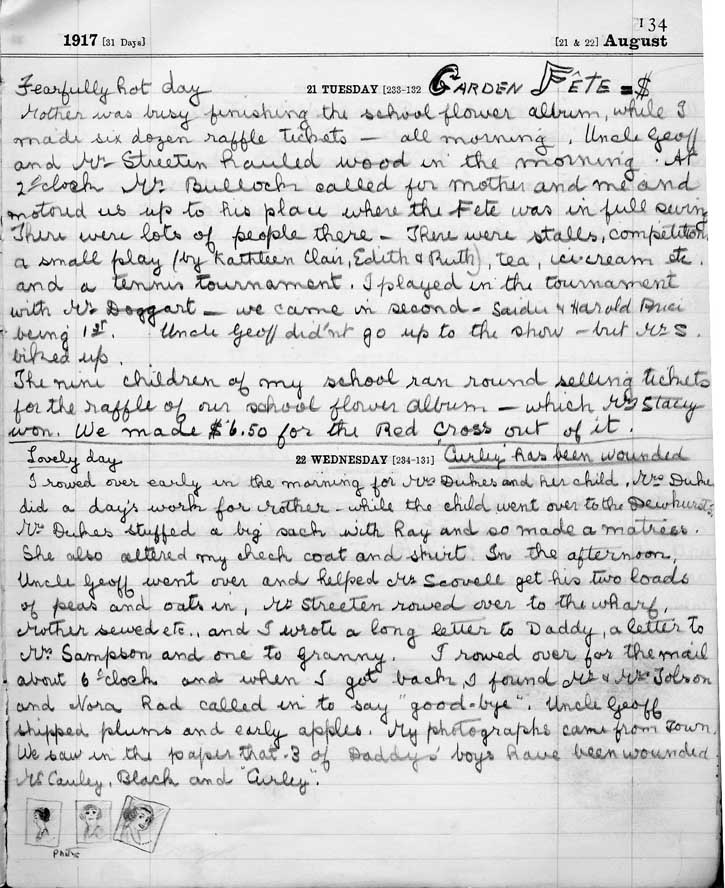 134
1917 [31 Days] [21 & 22] August
Fearfully hot day 21 TUESDAY [233-132 GARDEN FÊTE = $
Mother was busy finishing the school flower album, while I
made six dozen raffle tickets — all morning. Uncle Geoff
and Mr Streeten hauled wood in the morning. At
2 o'clock Mr Bullock called for mother and me and
motored us up to his place where the Fete was in full swing
There were lots of people there — There were stalls, competition,
a small play (by Kathleen Clair, Edith & Ruth), tea, ice-cream etc.
and a tennis tournament. I played in the tournament
with Mr Doggart — we came in second — & Harold Price
being 1st. Uncle Geoff did'nt go up to the show — but Mr S.
biked up.
The nine children of my school ran round selling tickets
for the raffle of our school flower album — which Mrs Stacey
won. We made $6.50 for the Red Cross out of it.
Lovely day 22 WEDNESDAY [234-131] "Curley" has been wounded
I rowed over early in the morning for Mrs Dukes and her child. Mrs Duke
did a day's work for Mother — while the child went over to the Dewhursts.
Mrs Dukes stuffed a big sack with hay and so made a matress.
She also altered my check coat and skirt. In the afternoon,
Uncle Geoff went over and helped Mr Scovell get his two loads
of peas and oats in, Mr Streeten rowed over to the wharf,
Mother sewed etc., and I wrote a long letter to Daddy, a letter to
Mrs Sampson and one to Granny. I rowed over for the mail
about 6 o'clock and when I got back, I found Mr & Mrs Tolson
and Nora Rad called in to say "good-bye". Uncle Geoff
shipped plums and early apples. My photographs came from Town.
We saw in the paper that 3 of Daddy's boys have been wounded
McCauley, Black and "Curley".